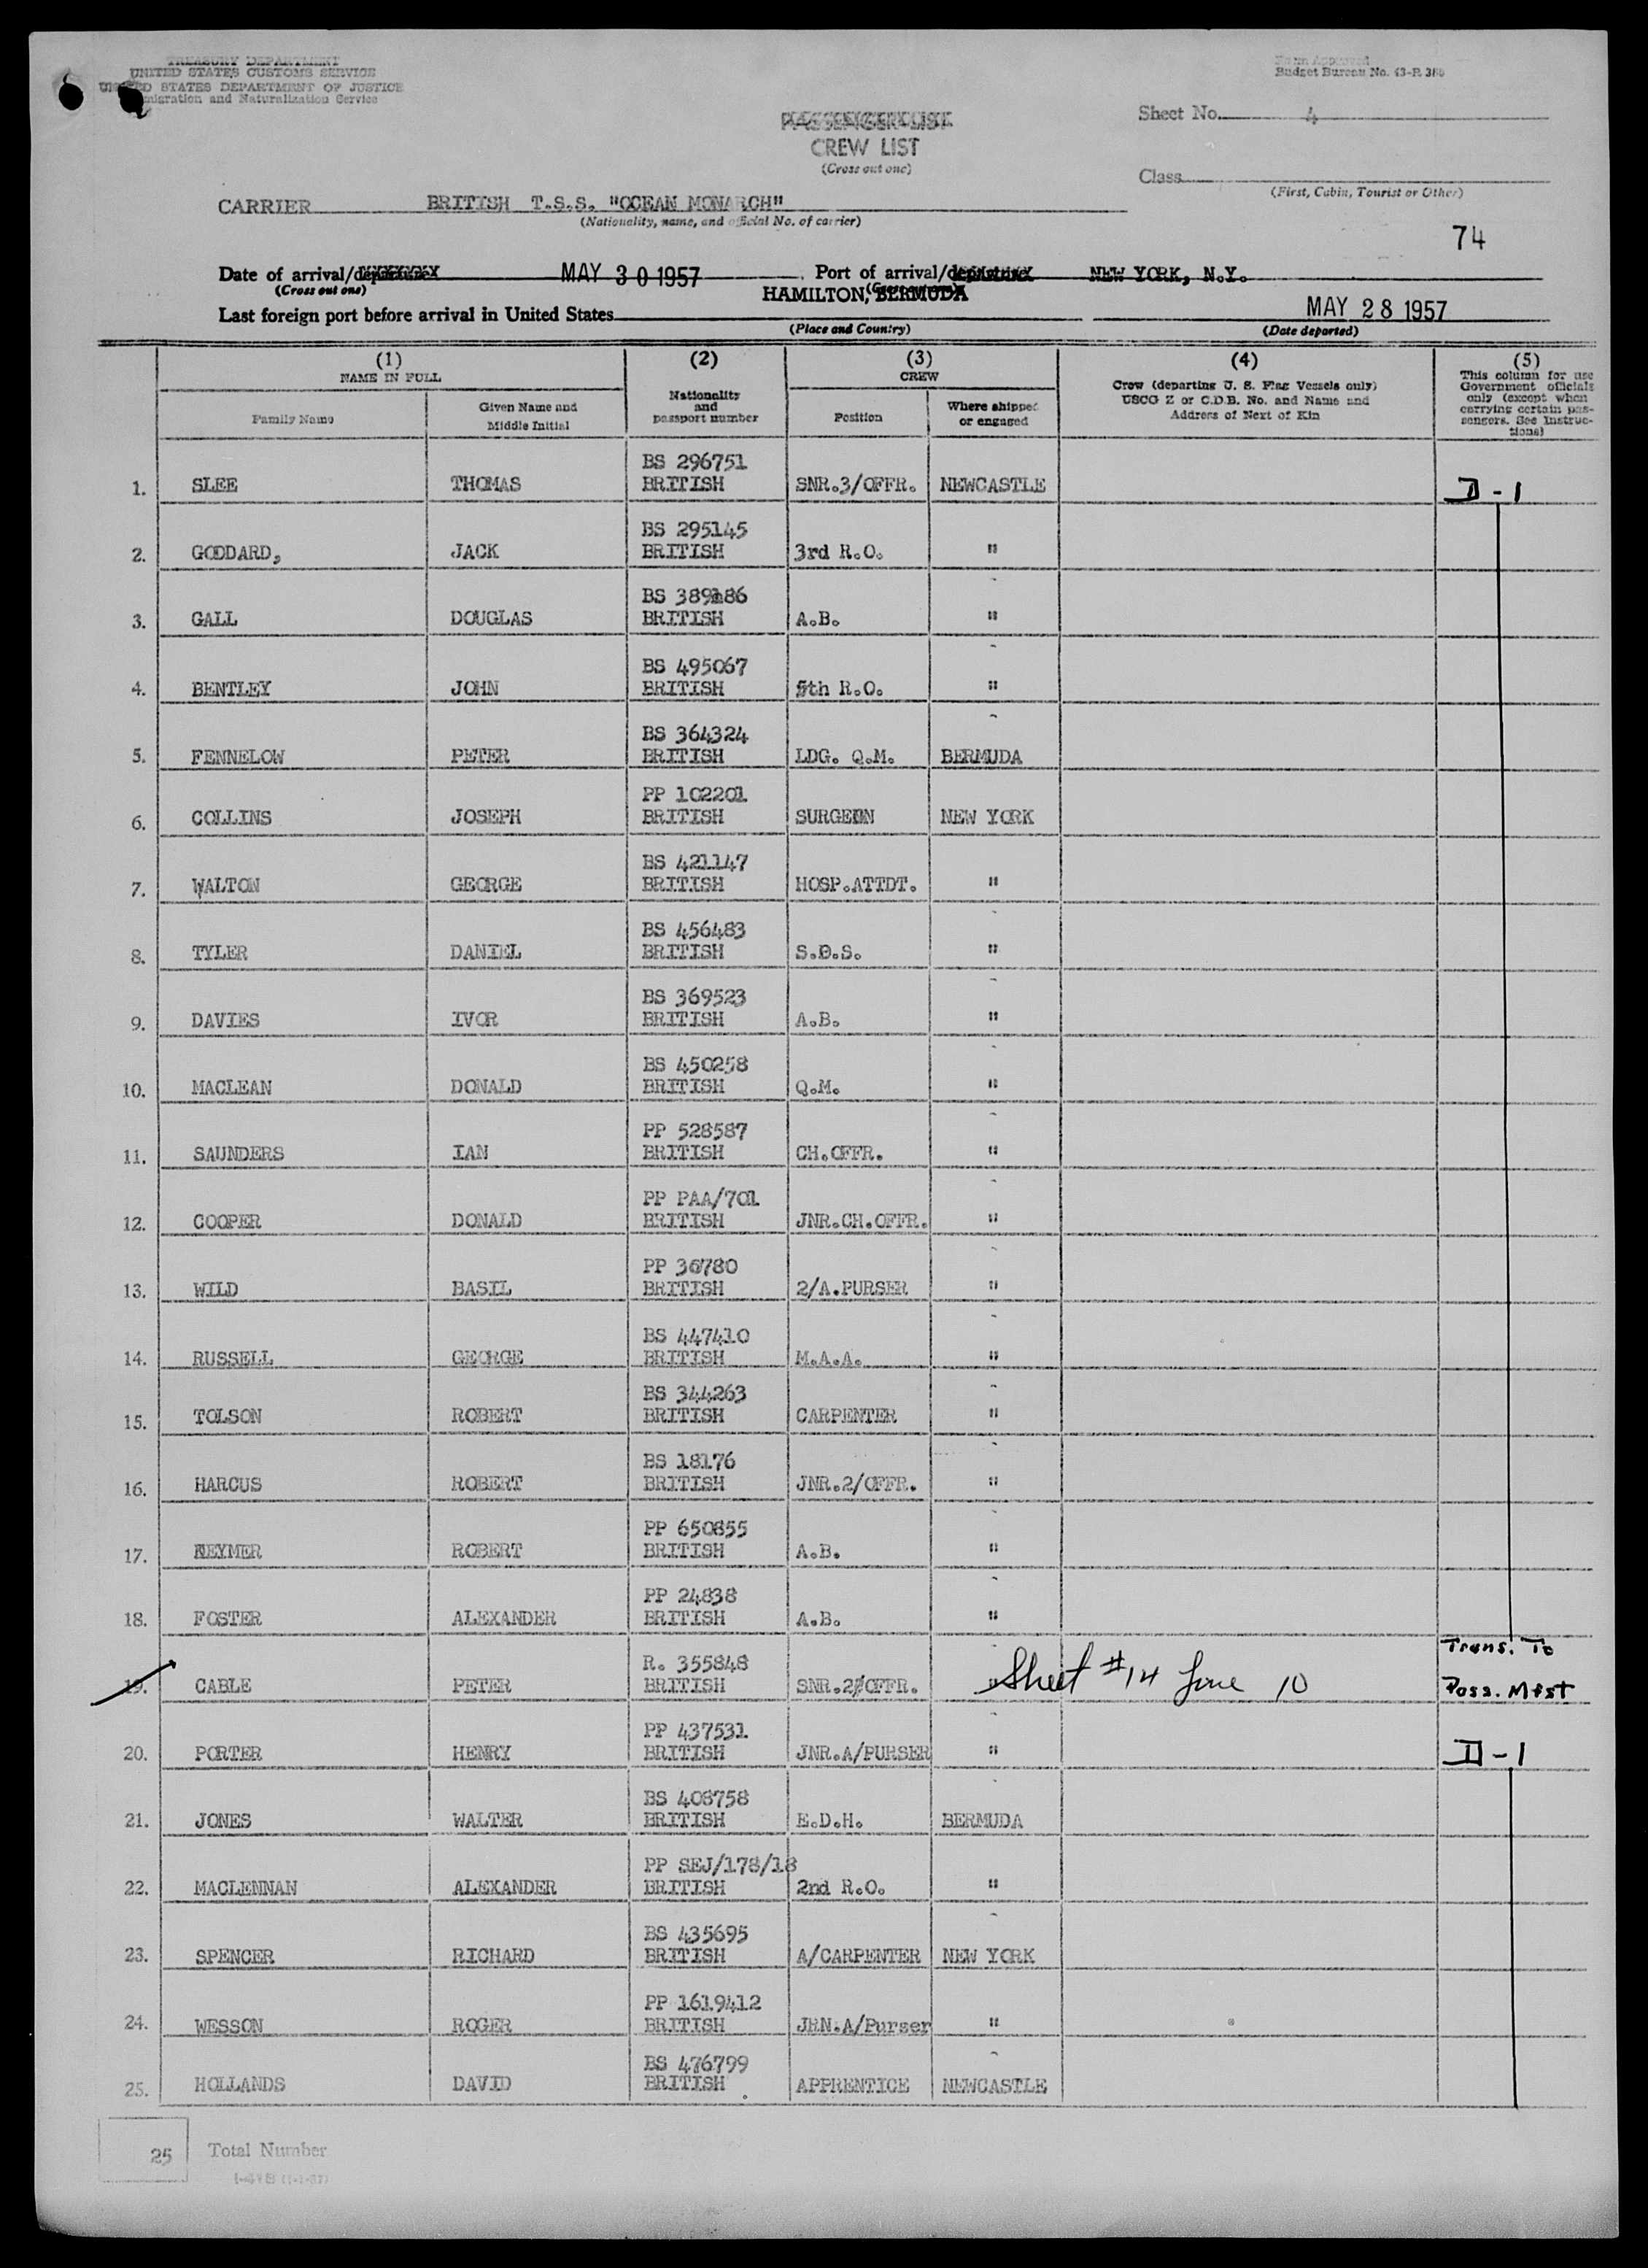 TREASURY DEPARTMENT
UNITED STATES CUSTOMS SERVICE
UNITED STATES DEPARTMENT OF JUSTICE
Immigration and Naturalization Service
Form Approved
Budget Bureau No. 43-R
Sheet No. 4
PASSENGER LIST
CREW LIST
(Cross out one)
Class
(First, Cabin, Tourist or Other)
CARRIER BRITISH T.S.S. "OCEAN MONARCH"
(Nationality, name, and official No. of carrier)
74
Date of arrival/departure MAY 30 1957 Port of arrival/departure NEW YORK, N.Y.
(Cross out one) (Cross out one)
HAMILTON, BERMUDA
Last foreign port before arrival in United States MAY 28 1957
(Place and Country) (Date departed)
(1) (2) (3) (4) (5)
NAME IN FULL CREW
Family Name
Given Name and
Middle Initial
Nationality
and
passport number
Position
Where shipped
or engaged
Crew (departing U. S. Flag Vessels only)
USCG Z or C.D.B. No. and Name and
Address of Next of Kin
This column for use
Government officials
only (except when
carrying certain pas-
sengers. See Instruc-
tions)
BS 296751
1. SLEE THOMAS BRITISH SNR.3/OFFR. NEWCASTLE D-1
BS 295145
2. GODDARD, JACK BRITISH 3rd R.O. "
BS
3. GALL DOUGLAS BRITISH A.B. "
BS 495067
4. BENTLEY JOHN BRITISH 5th R.O. "
BS 364324
5. FENNELOW PETER BRITISH LDG. Q.M. BERMUDA
PP 102201
6. COLLINS JOSEPH BRITISH SURGEON NEW YORK
BS 421147
7. WALTON GEORGE BRITISH HOSP.ATTDT. "
BS 456483
8. TYLER DANIEL BRITISH S.D.S. "
BS 369523
9. DAVIES IVOR BRITISH A.B. "
BS 450258
10. MACLEAN DONALD BRITISH Q.M. "
PP 528587
11. SAUNDERS IAN BRITISH CH.OFFR. "
PP PAA/701
12. COOPER DONALD BRITISH JNR.CH.OFFR. "
PP 36780
13. WILD BASIL BRITISH 2/A.PURSER "
BS 447410
14. RUSSELL GEORGE BRITISH M.A.A. "
BS 344263
15. TOLSON ROBERT BRITISH CARPENTER "
BS 18176
16. HARCUS ROBERT BRITISH JNR.2/OFFR. "
PP 650855
17. NEYMER ROBERT BRITISH A.B. "
PP 24838
18. FOSTER ALEXANDER BRITISH A.B. "
Trans. To
R. 355848
19. CABLE PETER BRITISH SNR.2/OFFR. " Sheet #14 Line 10 Pass. Mfst
PP 437531
20. PORTER HENRY BRITISH JNR.A/PURSER " D-1
BS 408758
21. JONES WALTER BRITISH E.D.H. BERMUDA
PP SEJ/178/18
22. MACLENNAN ALEXANDER BRITISH 2nd R.O. "
BS 435695
23. SPENCER RICHARD BRITISH A/CARPENTER NEW YORK
PP 1619412
24. WESSON ROGER BRITISH JRN.A/Purser "
BS 476799
25. HOLLANDS DAVID BRITISH APPRENTICE NEWCASTLE
25 Total Number